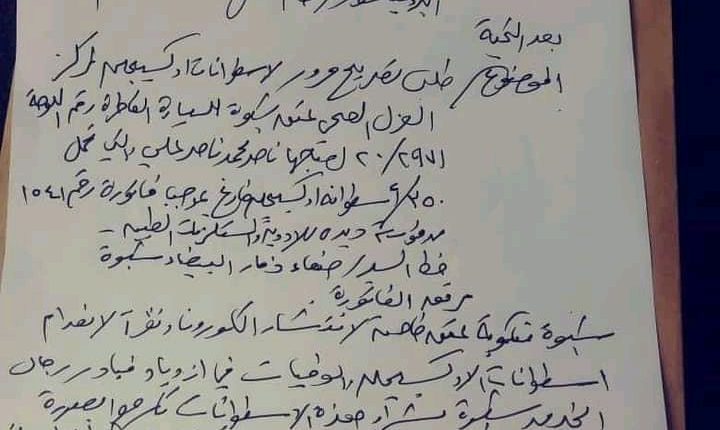 بعد التحية
الموضوع/ طلب تصريح مرور لاسطوانات اوكسيجين لمركز
العزل الصحي عتق شبوة للسيارة القاطرة رقم اللوحة
٢٠/٢٩٧١ لصاحبها ناصر محمد ناصر علي والتي تحمل
٢٥٠/ اسطوانه اوكسيجين فارغ بموجب فاتورة رقم ١٥٤١
من مؤسسة للادوية والمستلزمات الطبيه -
خط السير/ صنعاء ذمار البيضاء شبوة
مرفق الفاتورة
شبوة منكوبة عتق خاصة لانتشار الكورونا ونظراً لانعدام
اسطوانات الاوكسيجين والوفيات في ازدياد فبادر رجال
الخير من شبوة بشراء هذه الاسطوانات